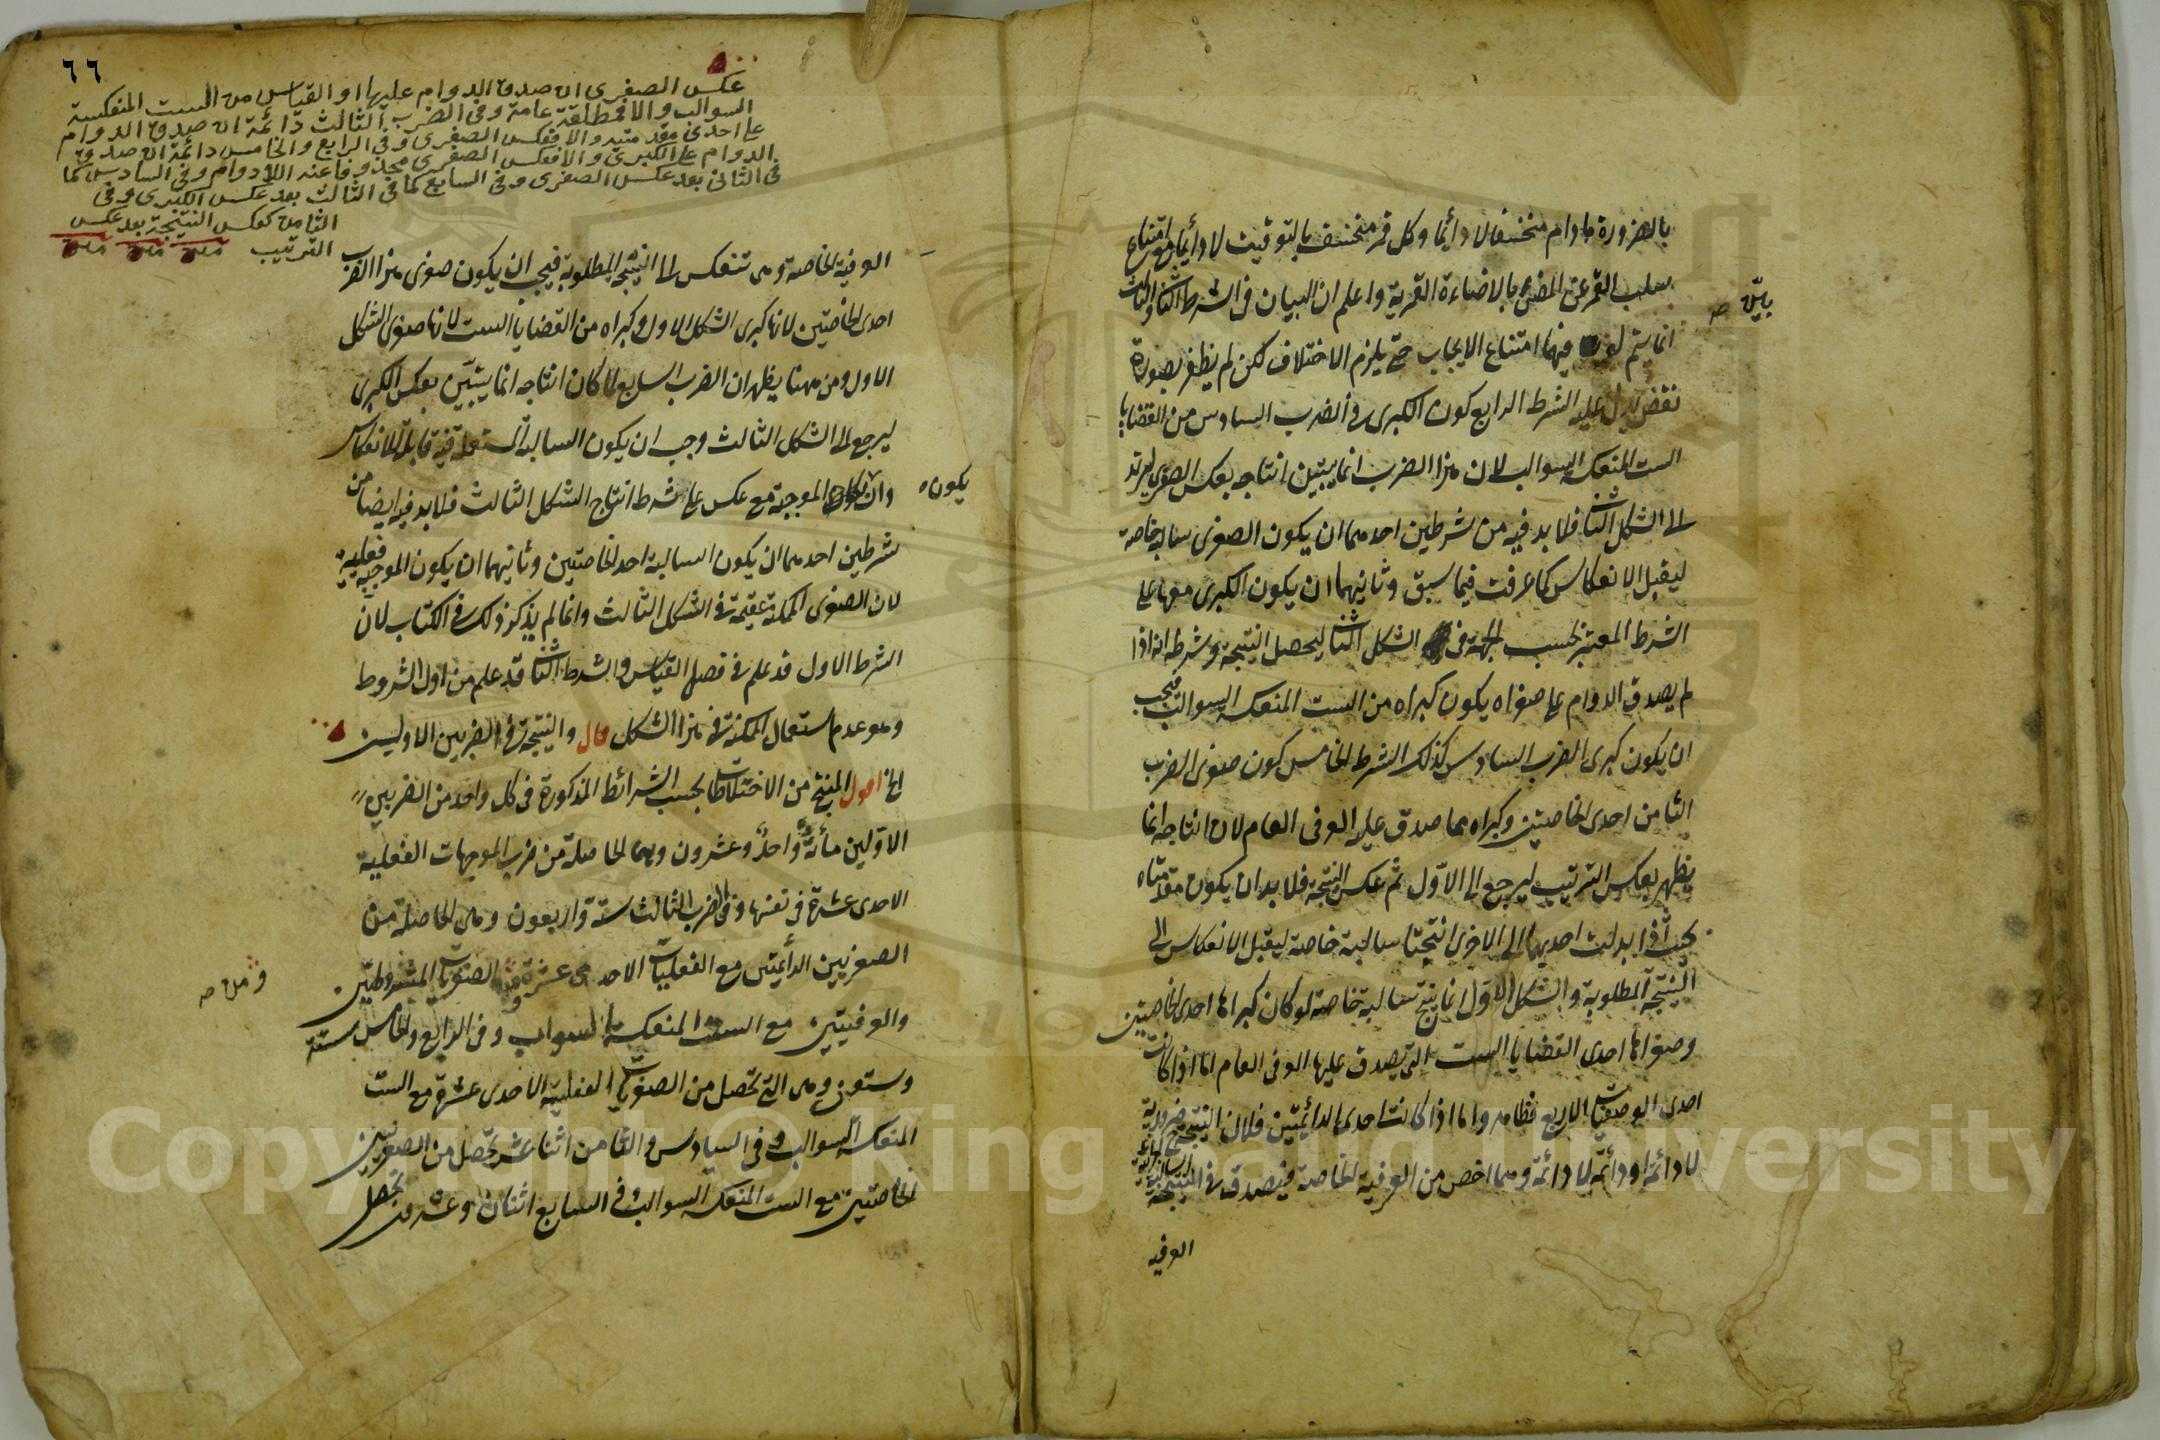 بالضرورة مادام منخسفا لا دائما وكل قمر منخسف بالتوقيت لا دائما مع امتناع
سلب القمر عن المضئ بالاضاءة القمرية واعلم ان البيان فى الشرط الثانى والثالث
انما يتم لو فيهما امتناع الايجاب حتى يلزم الاختلاف لكن لم يظفر بصورة
بيّن صح
نقض يدل عليه الشرط الرابع كون الكبرى فى الضرب السادس من القضايا
الست المنعكسة السوالب لان هذا الضرب انما يتبين انتاجه بعكس الصغرى ليرتد
الى الشكل الثانى فلا بد فيه من شرطين احدهما ان يكون الصغرى سالبة خاصة
ليقبل الانعكاس كما عرفت فيما سبق وثانيهما ان يكون الكبرى معها على
الشرط المعتبر بحسب الجهة فى الشكل الثانى ليحصل النتيجة وشرطه انه اذا
لم يصدق الدوام على صغراه يكون كبراه من الست المنعكسة السوالب فيجب
ان يكون كبرى الضرب السادس كذلك الشرط الخامس كون صغرى الضرب
الثامن احدى الخاصتين وكبراه مما صدق عليه العرفى العام لان انتاجه انما
يظهر بعكس الترتيب ليرجع الى الاوّل ثم عكس النتيجة فلا بد ان يكون مقدمتاه
بحيث اذا بدلت احديهما الى الاخرى انتجتا سالبة خاصة ليقبل الانعكاس الى
النتيجة المطلوبة والشكل الاوّل انما ينتج سالبة خاصة لو كان كبراها احدى الخاصتين
وصغراها احدى القضايا الست التى يصدق عليها العرفى العام اما اذا كانت
احدى الوصفيات الاربع فظاهر واما اذا كانت احدى الدائمتين فلان النتيجة ح ضرورية
لا دائمة او دائمة لا دائمة وهما اخص من العرفية الخاصة فيصدق فى النتيجة
العرفيه
٦٦
عكس الصغرى ان صدق الدوام عليها او القياس من الست المنعكسة
السوالب والا فمطلقة عامة وفى الضرب الثالث دائمة ان صدق الدوام
على احدى مقدمتيه والا فعكس الصغرى وفى الرابع والخامس دائمة ان صدق
الدوام على الكبرى والا فعكس الصغرى محذوفا عنه اللادوام وفى السادس كما
فى الثانى بعد عكس الصغرى وفى السابع كما فى الثالث بعد عكس الكبرى وفى
الثامن كعكس النتيجة بعد عكس
الترتيب
العرفية الخاصة وهى تنعكس الى النتيجة المطلوبة فيجب ان يكون صغرى هذا الضرب
احدى الخاصتين لانها كبرى الشكل الاول وكبراه من القضايا الست لانها صغرى الشكل
الاول ومن ههنا يظهر ان الضرب السابع لما كان انتاجه انما يتبيّن بعكس الكبرى
ليرجع الى الشكل الثالث وجب ان يكون السالبة المستعملة فيه قابلة للانعكاس
وان الموجبة مع عكس على شرط انتاج الشكل الثالث فلا بد فيه ايضا من
يكون
شرطين احدهما ان يكون السالبة احد الخاصتين وثانيهما ان يكون الموجبة فعلية
لان الصغرى الممكنة عقيمة فى الشكل الثالث وانما لم يذكر ذلك فى الكتاب لان
الشرط الاول قد علم فى فصل القياس والشرط الثانى قد علم من اول الشروط
وهو عدم استعمال الممكنة فى هذا الشكل قال والنتيجة فى الضربين الاولين
الخ اقول المنتج من الاختلاطات بحسب الشرائط المذكورة فى كل واحد من الضربين
الاوّلين مأئة واحد وعشرون وهى الحاصلة من ضرب الموجهات الفعلية
الاحدى عشرة فى نفسها وفى الضرب الثالث ستة واربعون وهى الحاصلة من
الصغريين الدائمتين مع الفعليات الاحدى عشرة الصغريات المشروطتين
ومن صح
والعرفيتين مع الست المنعكسة السوالب وفى الرابع والخامس ستة
وستون وهى التى تحصل من الصغريات الفعلية الاحدى عشرة مع الست
المنعكسة السوالب وفى السادس والثامن اثنا عشر تحصل من الصغريين
الخاصتين مع الست المنعكسة السوالب وفى السابع اثنان وعشرون تحصل
Copyright © King Saud University